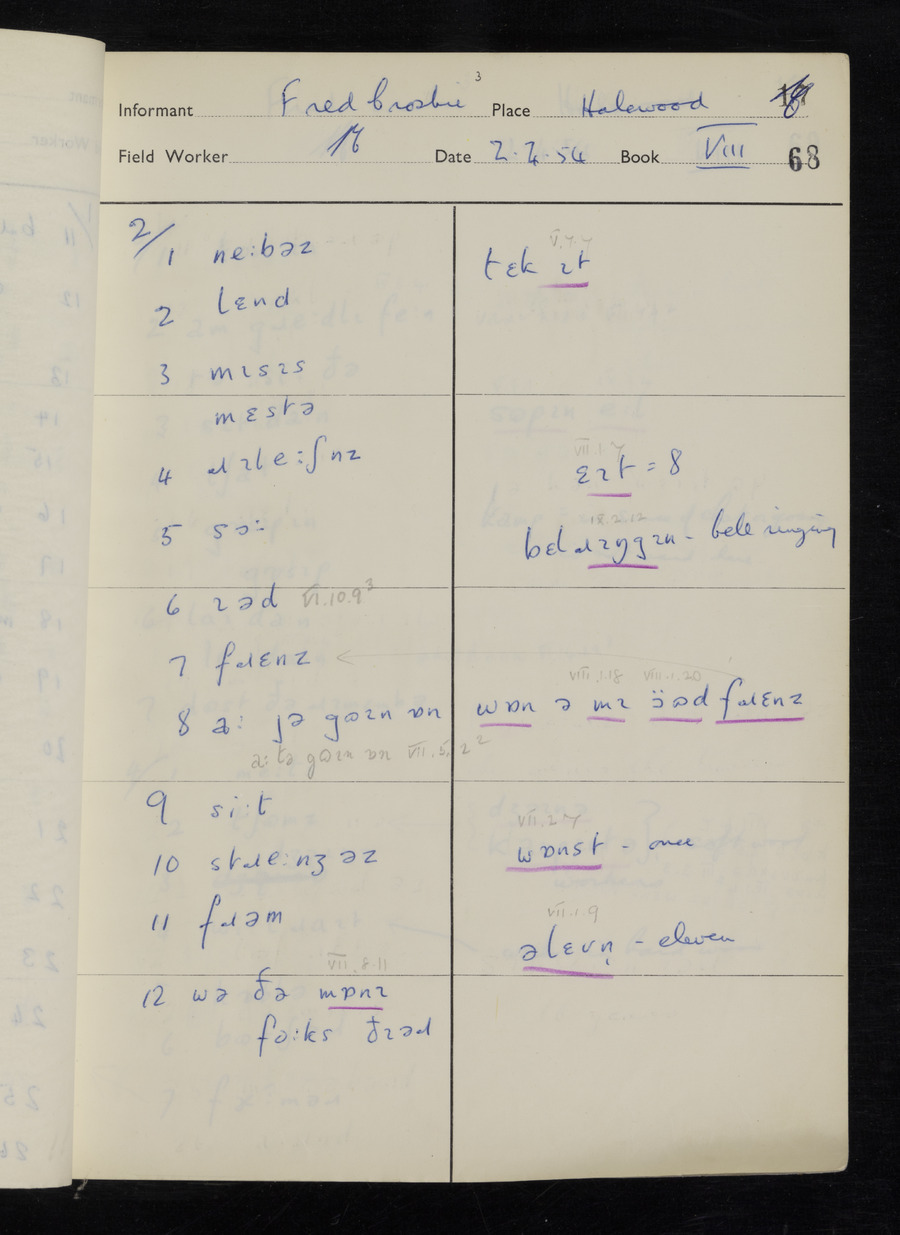 3
Informant Fred Crosbie Place Halewood
Field Worker Date 2·4·54 Book VIII 68
2/
1 neːbəz
2 lɛnd
3 mɪsɪs
mɛstə
4 ɹɪleːʃnz
5 sɔː
6 ɪəd VI.10.9³
7 fɹɛnz
8 aː jə gɷɪn ɒn
aː tə gɷɪn ɒn VII.5.2²
9 siːt
10 stɹeːnʒəz
11 fɹəm
VII.8.11
12 wə ðə mɒnɪ
fɔːks ðɪəd
V.7.7
tɛk ɪt
VII.1.7
ɛɪt = 8
bɛl ɹɪŋgɪn - bell ringing
VIII.1.18 VIII.1.20
wɒn ə mɪ fɹɛnz
VII.2.7
wɒnst - once
VII.1.9
əlɛvn̩ - eleven